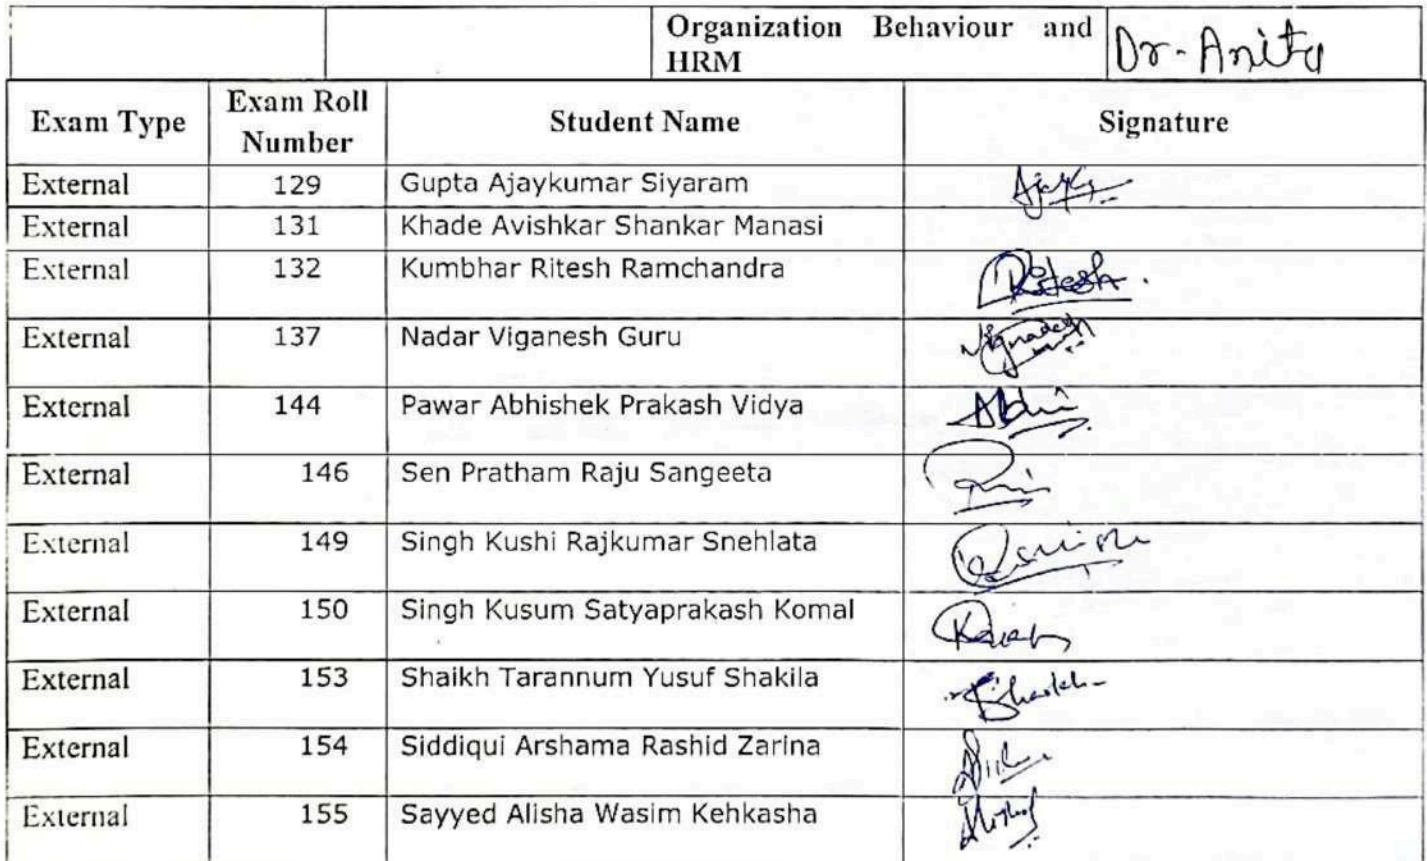 Organization Behaviour and
HRM
Dr-Anita
Exam Type Exam Roll Number Student Name Signature
External 129 Gupta Ajaykumar Siyaram
External 131 Khade Avishkar Shankar Manasi
External 132 Kumbhar Ritesh Ramchandra Ritesh.
External 137 Nadar Viganesh Guru
External 144 Pawar Abhishek Prakash Vidya Abhi
External 146 Sen Pratham Raju Sangeeta
External 149 Singh Kushi Rajkumar Snehlata
External 150 Singh Kusum Satyaprakash Komal
External 153 Shaikh Tarannum Yusuf Shakila Shaikh
External 154 Siddiqui Arshama Rashid Zarina
External 155 Sayyed Alisha Wasim Kehkasha